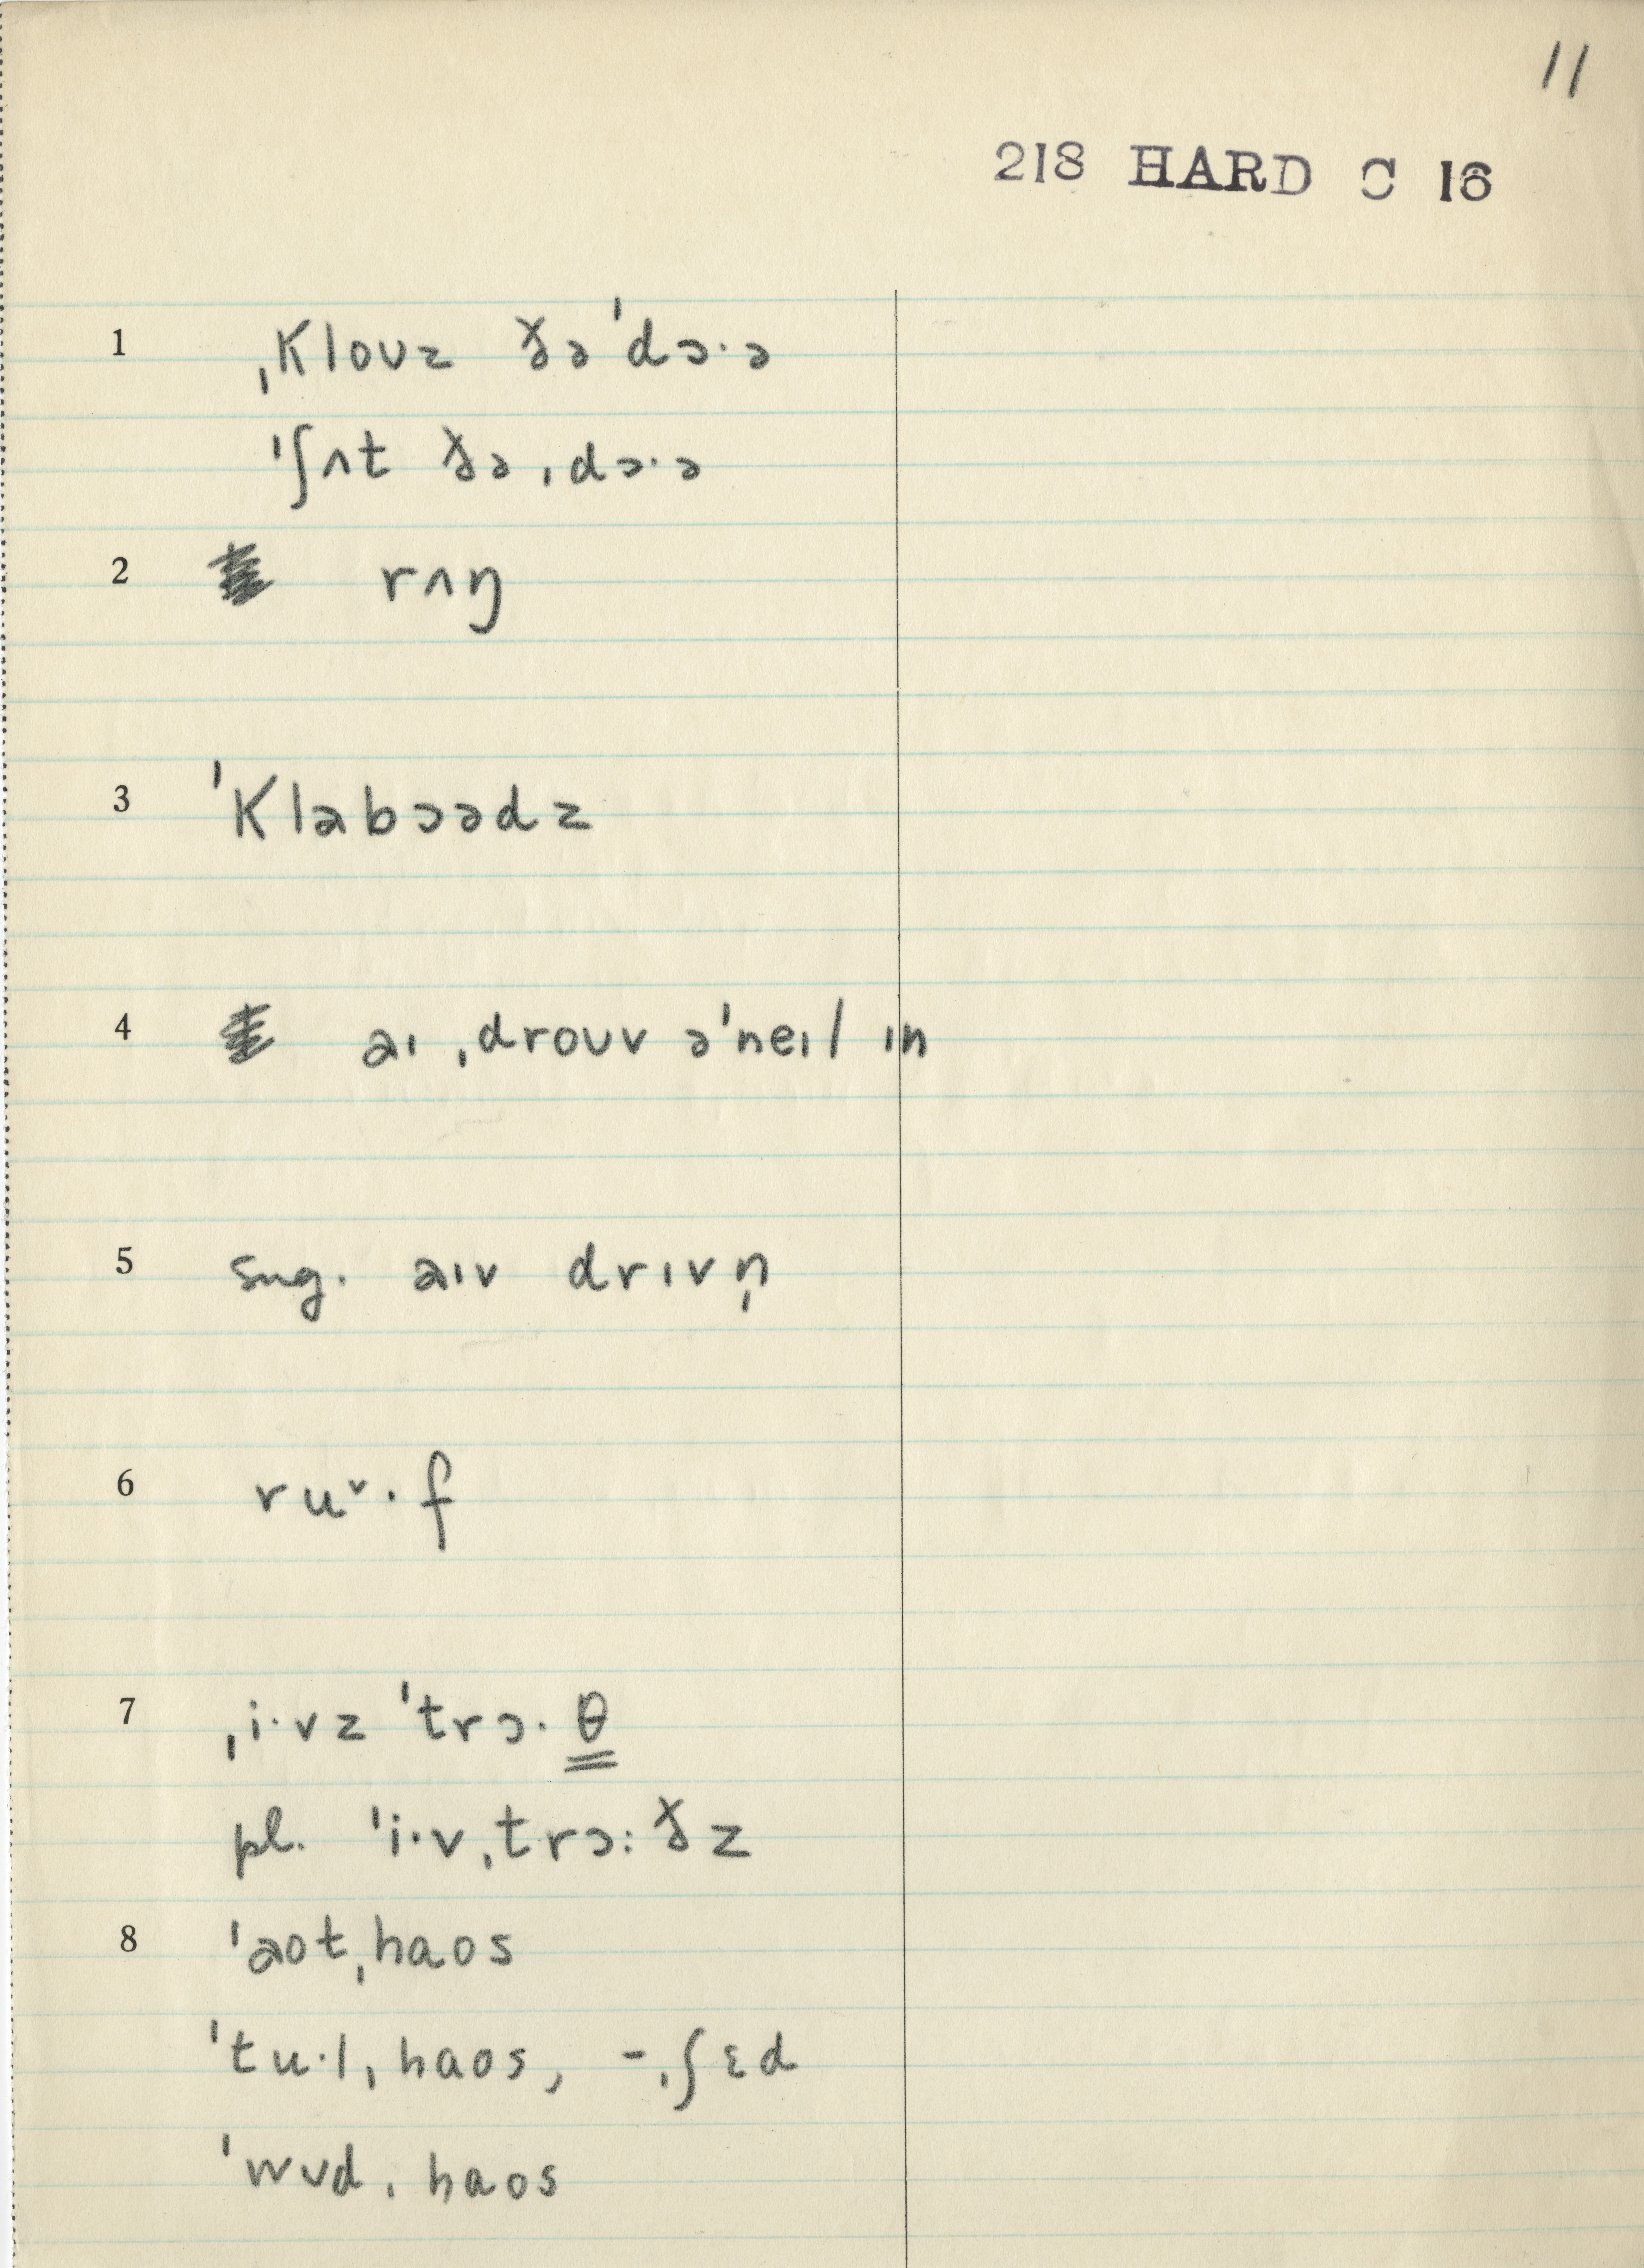 11
218 HARD C 16
1 ˌklouz ðə ˈdɔ·ə
ˈʃʌt ðə ˌdɔ·ə
2 rʌŋ
3 ˈklabɔədz
4 aɪ ˌdroʊv əˈneɪl ɪn
5 sug. aɪv drɪvn̩
6 ruᵛ·f
7 ˌi·vz ˈtrɔ·θ
pl. ˈi·vˌtrɔ:ðz
8 ˈaʊtˌhaʊs
ˈtu·lˌhaʊs, -ˌʃɛd
ˈwʊdˌhaʊs